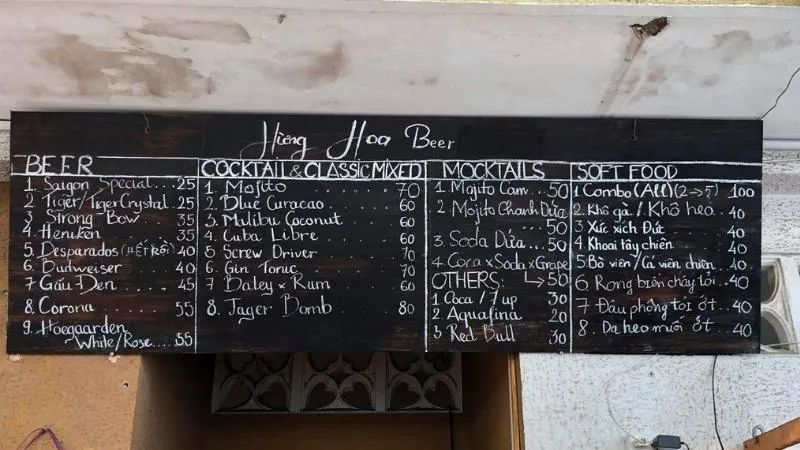 Hương Hoa Beer
BEER
1. Saigon Special...25
2 Tiger/Tiger Crystal.25
3 Strong Bow 35
4. Heniken 35
5. Desparados (HẾT RỒI) 40
6. Budweiser 40
7 Gấu Đen 45
8. Corona 55
9. Hoegaarden
White/Rose....55
COCKTAIL & CLASSIC MIXED
1. Mojito 70
2. Blue Curacao 60
3. Malibu Coconut 60
4. Cuba Libre 60
5 Screw Driver 70
6. Gin Tonic 70
7 Baley x Rum 60
8. Jager Bomb 80
MOCKTAILS
1. Mojito Cam...50
2. Mojito Chanh Dứa
...50
3. Soda Dứa...50
4 Coca x Soda x Grape
50
OTHERS:
1 Coca / 7 up 30
2. Aquafina 20
3 Red Bull 30
SOFT FOOD
1 Combo (All) (2→5) 100
2. Khô gà / Khô heo 40
3. Xúc xích Đức 40
4. Khoai tây chiên 40
5. Bò viên/Cá viên chiên 40
6. Rong biển cháy tỏi..40
7. Đậu phộng tỏi ớt..40
8. Da heo muối ớt..40